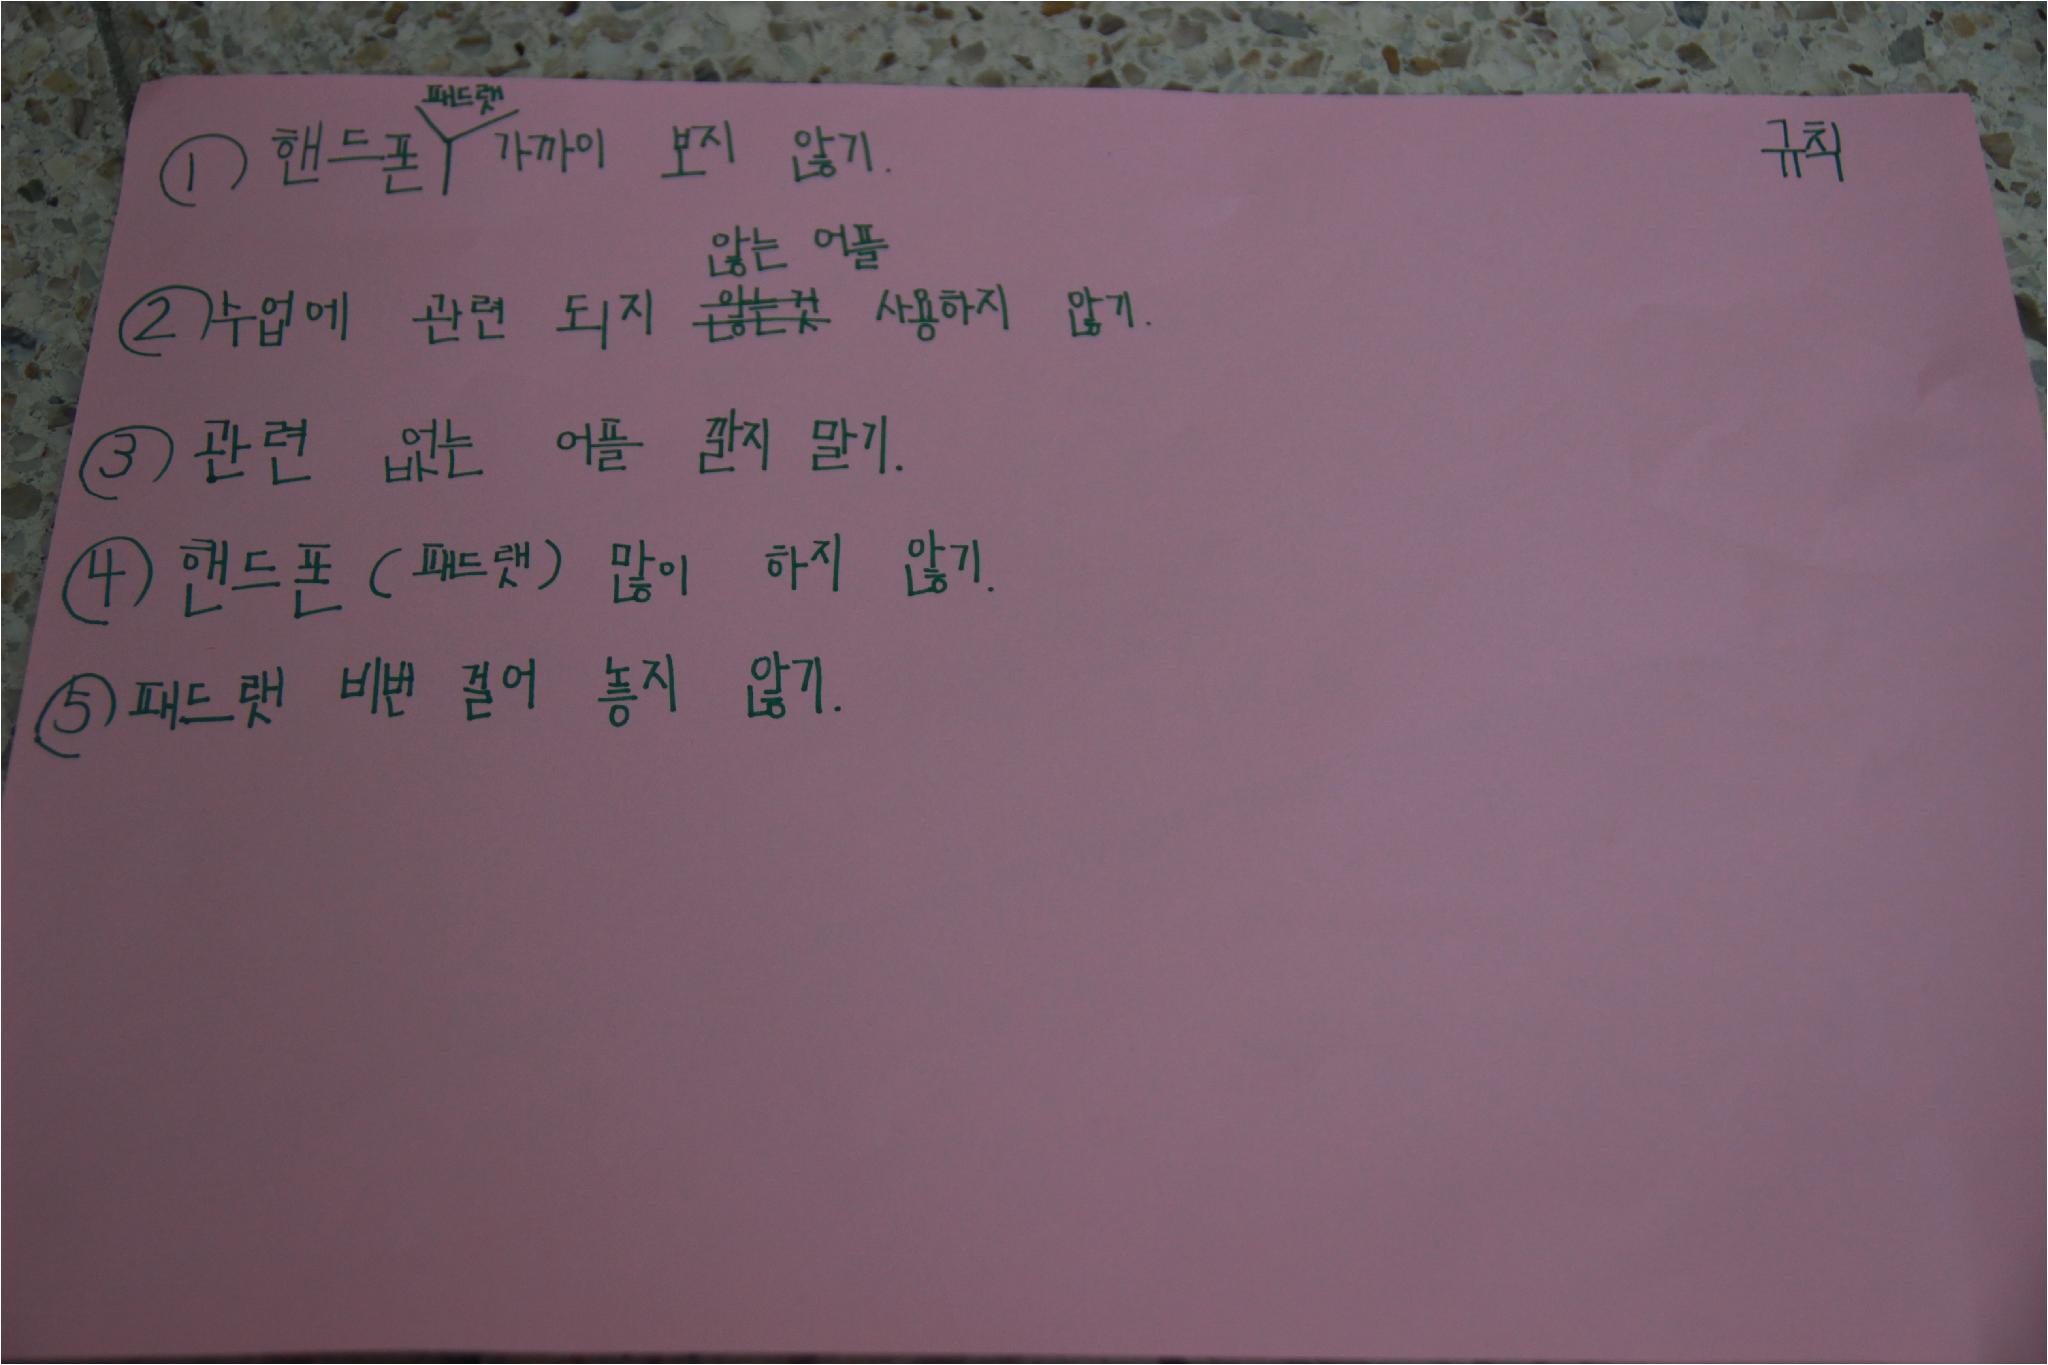 규칙
패드랫
① 핸드폰 가까이 보지 않기.
않는 어플
② 수업에 관련 되지 않는것 사용하지 않기.
③ 관련 없는 어플 깔지 말기.
④ 핸드폰 (패드랫) 많이 하지 않기.
⑤ 패드랫 비번 걸어 놓지 않기.